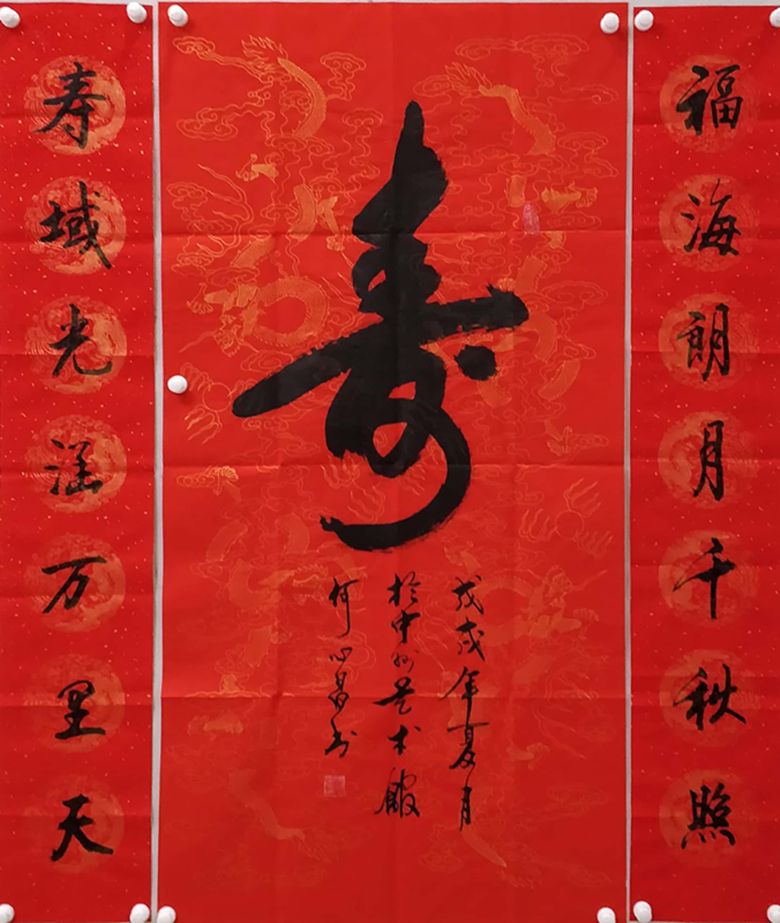 福海朗月千秋照
寿
戊戌年夏月
於中州艺术馆
何心昌书
寿域光涵万里天